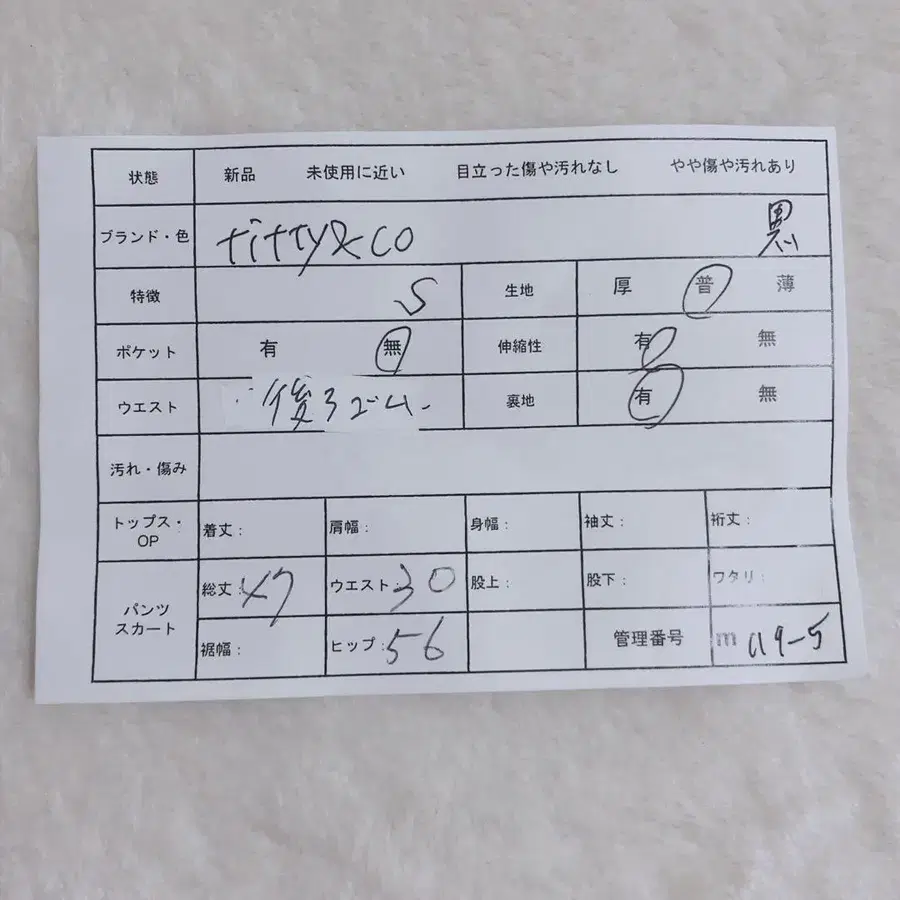 状態 新品 未使用に近い 目立った傷や汚れなし やや傷や汚れあり
ブランド・色 titty&co 黒
特徴 S 生地 厚 普 薄
ポケット 有 無 伸縮性 有 無
ウエスト 後ろゴム 裏地 有 無
汚れ・傷み
トップス・OP 着丈: 肩幅: 身幅: 袖丈: 裄丈:
パンツ スカート 総丈:47 ウエスト:30 股上: 股下: ワタリ:
裾幅: ヒップ:56 管理番号 m